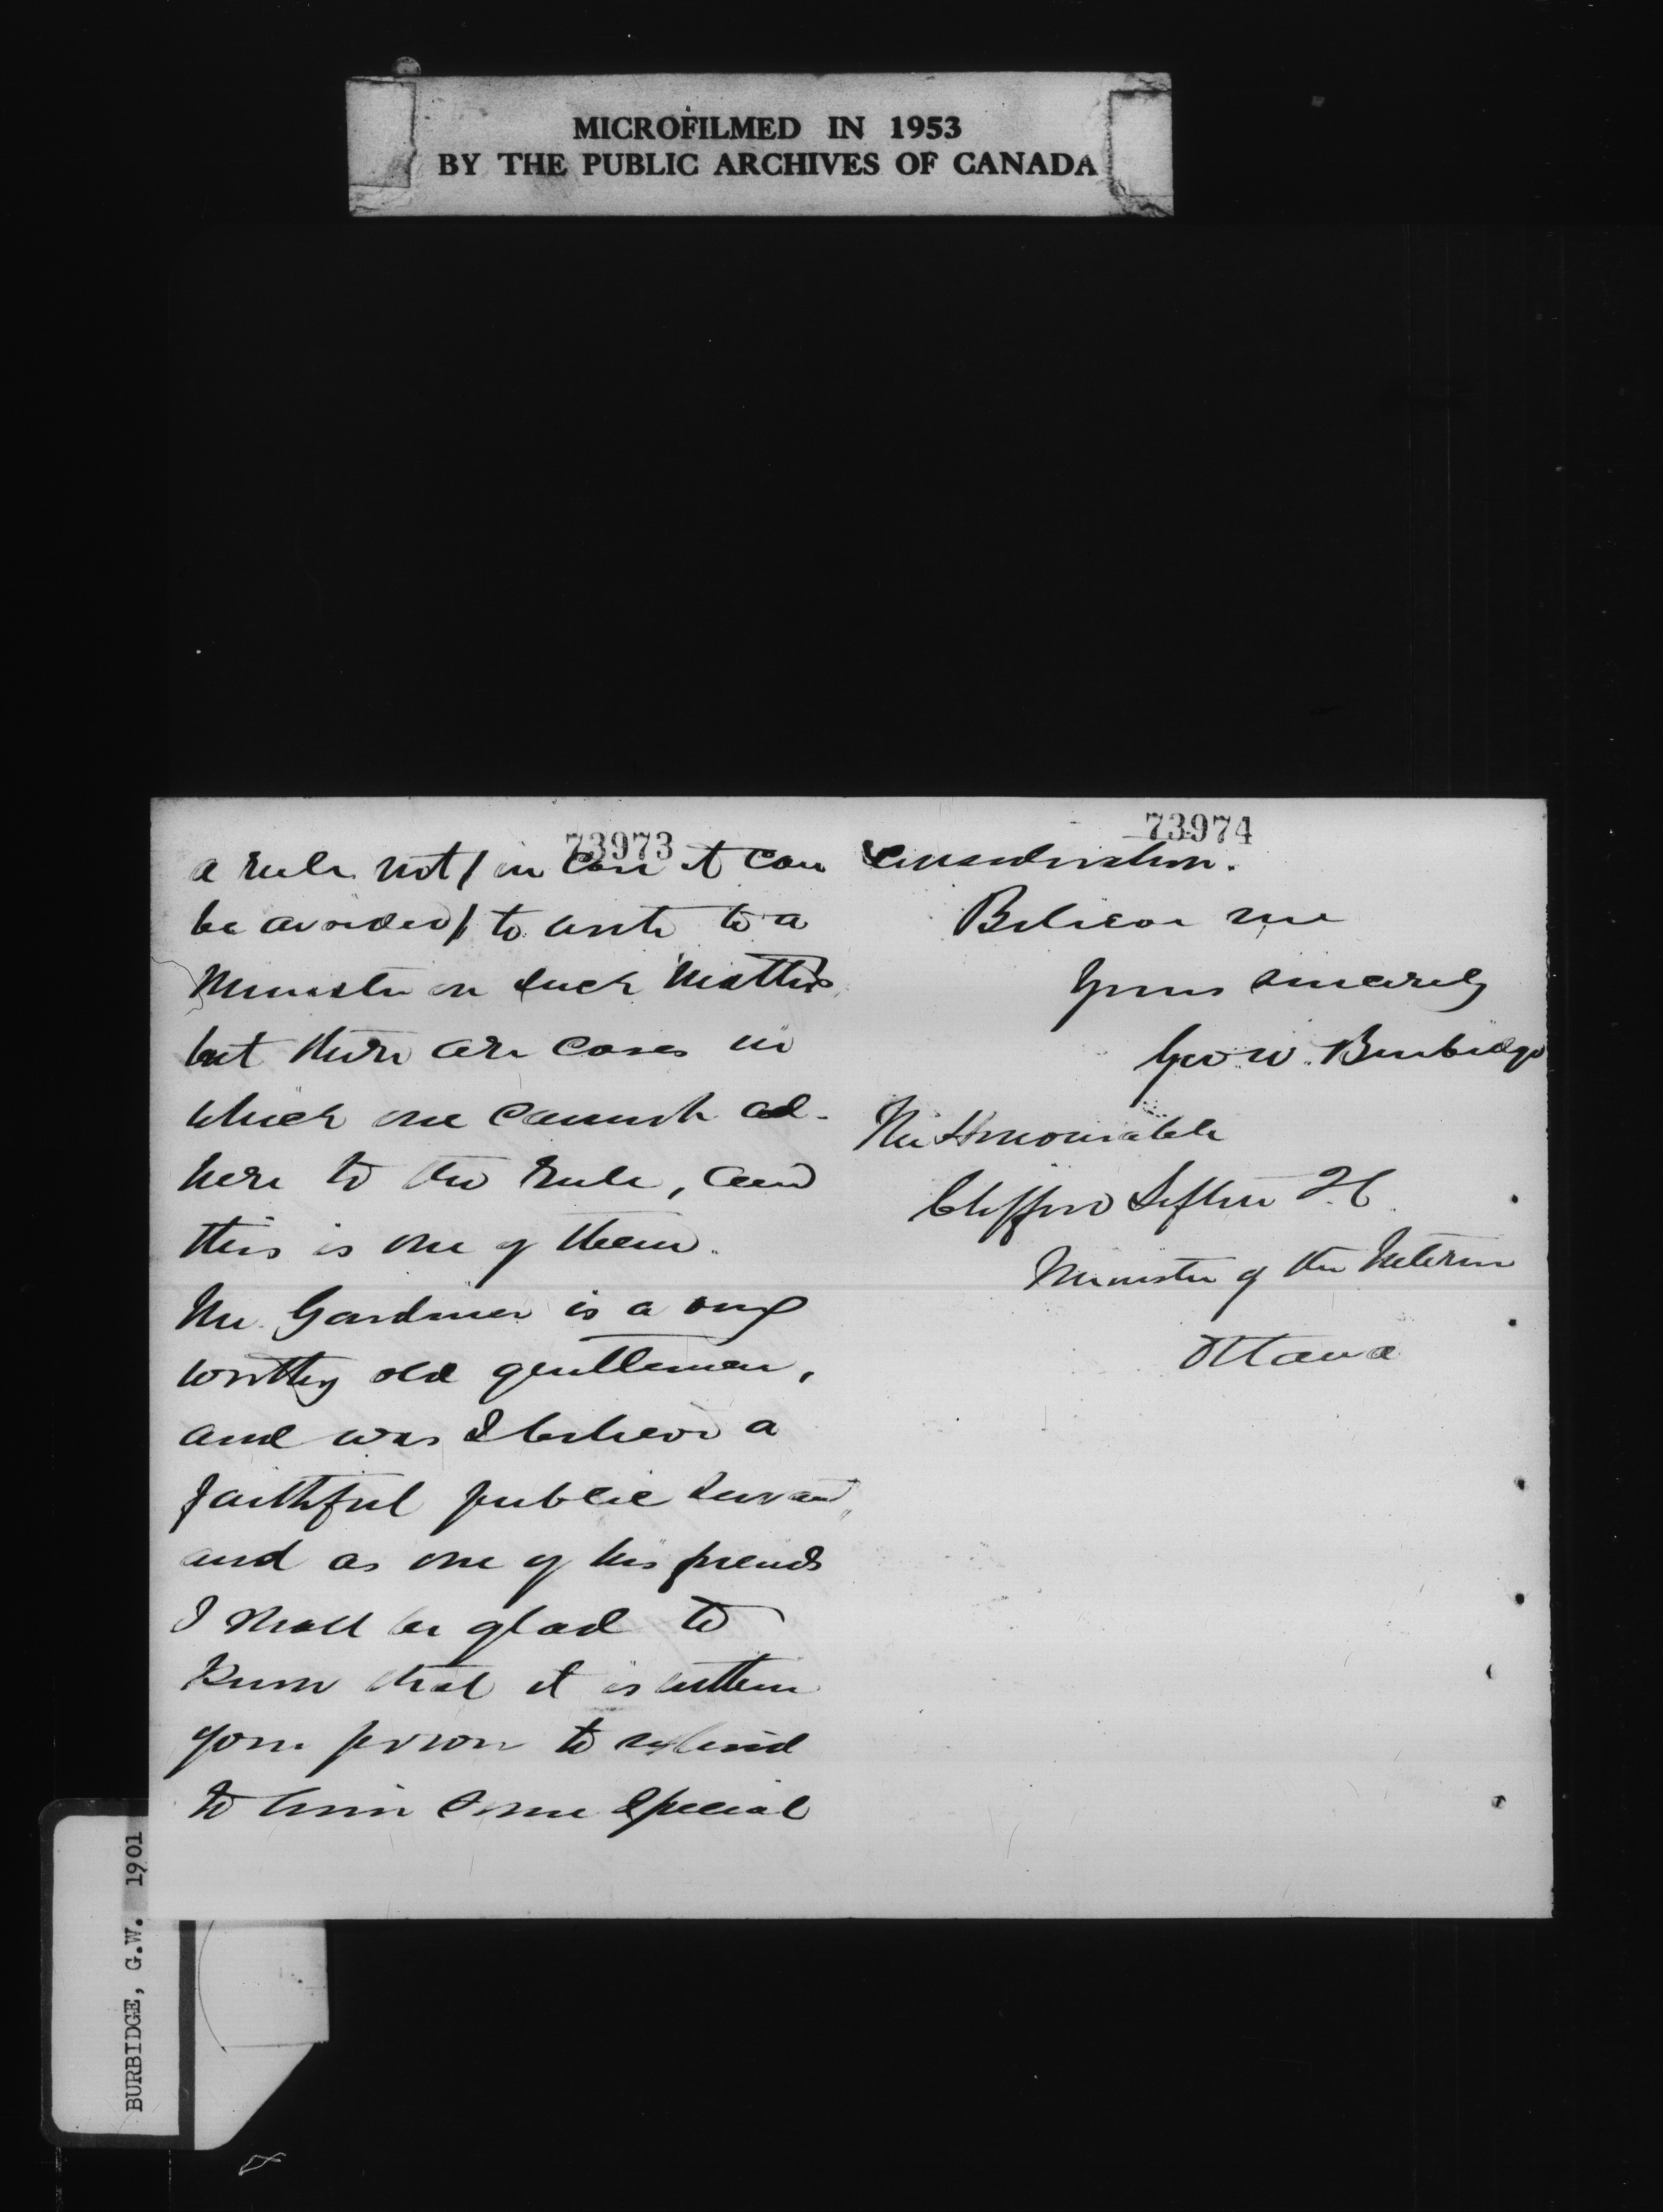 MICROFILMED IN 1953
BY THE PUBLIC ARCHIVES OF CANADA
73973
a rule not / in case it can
be avoided / to write to a
Minister on such matters,
but there are cases in
which one cannot ad-
here to the rule, and
this is one of them.
Mr. Gardiner is a very
worthy old gentleman,
and was I believe a
faithful public servant,
and as one of his friends
I shall be glad to
know that it is within
your power to extend
to him some special
73974
consideration.
Believe me
Yours sincerely
Geo. W. Burbidge
The Honourable
Clifford Sifton
Minister of the Interior
Ottawa
BURBIDGE, G.W. 1901